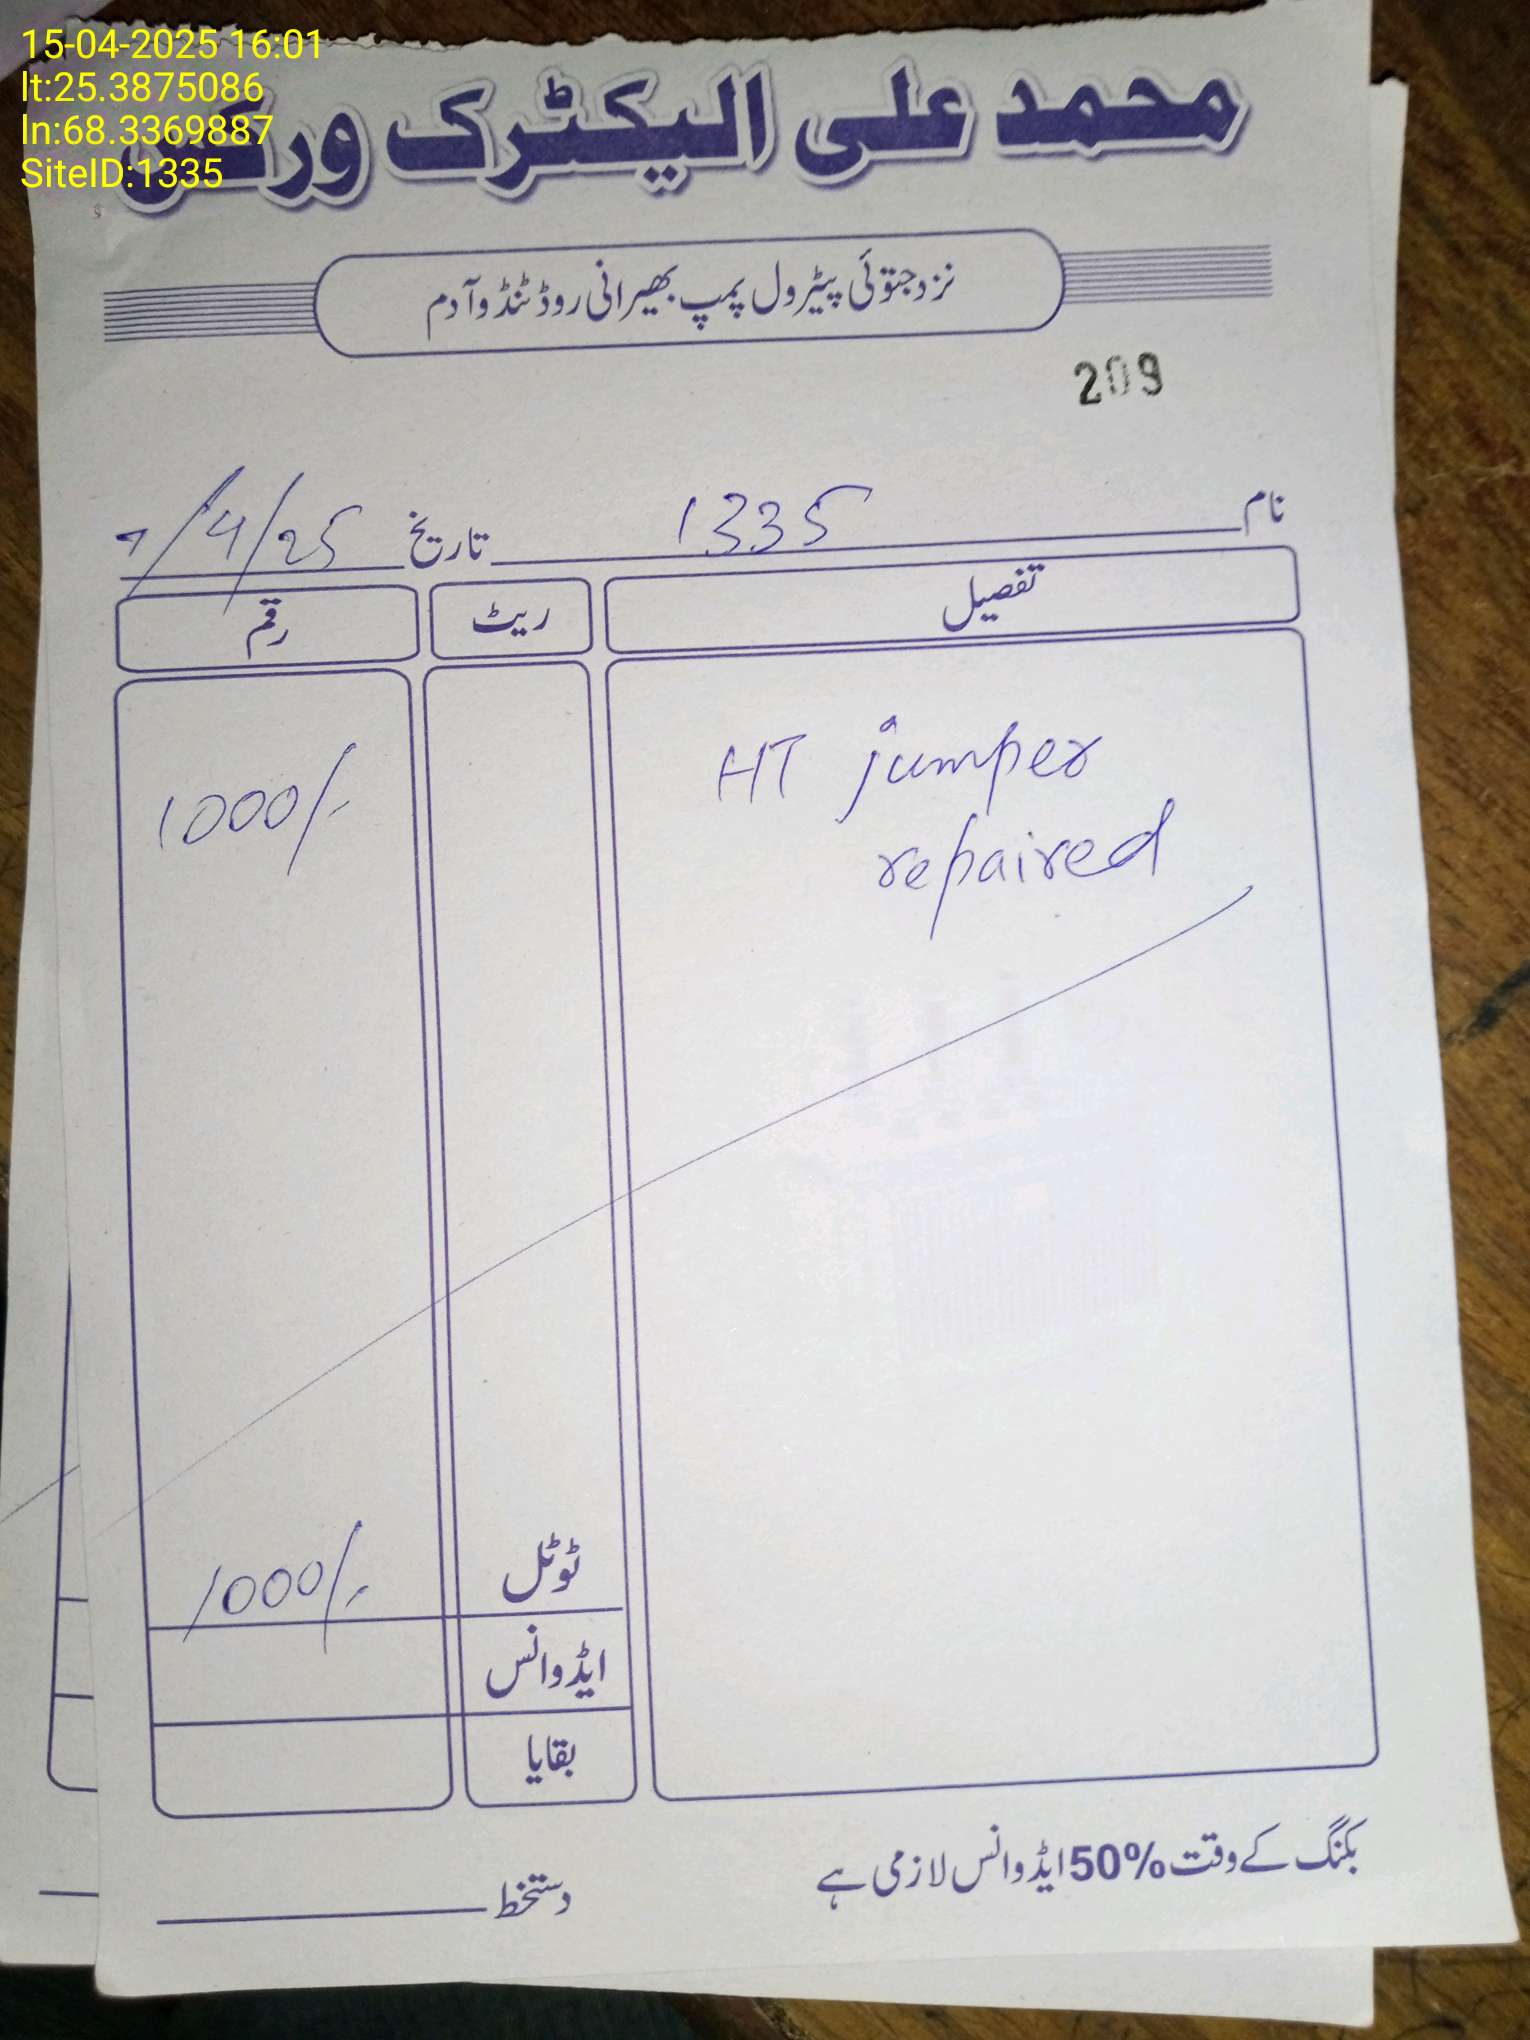 15-04-2025 16:01
lt:25.3875086
ln:68.3369887
SiteID:1335
محمد علی الیکٹرک ورکس
نزد جتوئی پیٹرول پمپ بھیرانی روڈ ٹنڈو آدم
209
نام 1335 تاریخ 7/4/25
تفصیل ریٹ رقم
HT jumper 1000/-
repaired
ٹوٹل 1000/-
ایڈوانس
بقایا
بکنگ کے وقت 50% ایڈوانس لازمی ہے
دستخط